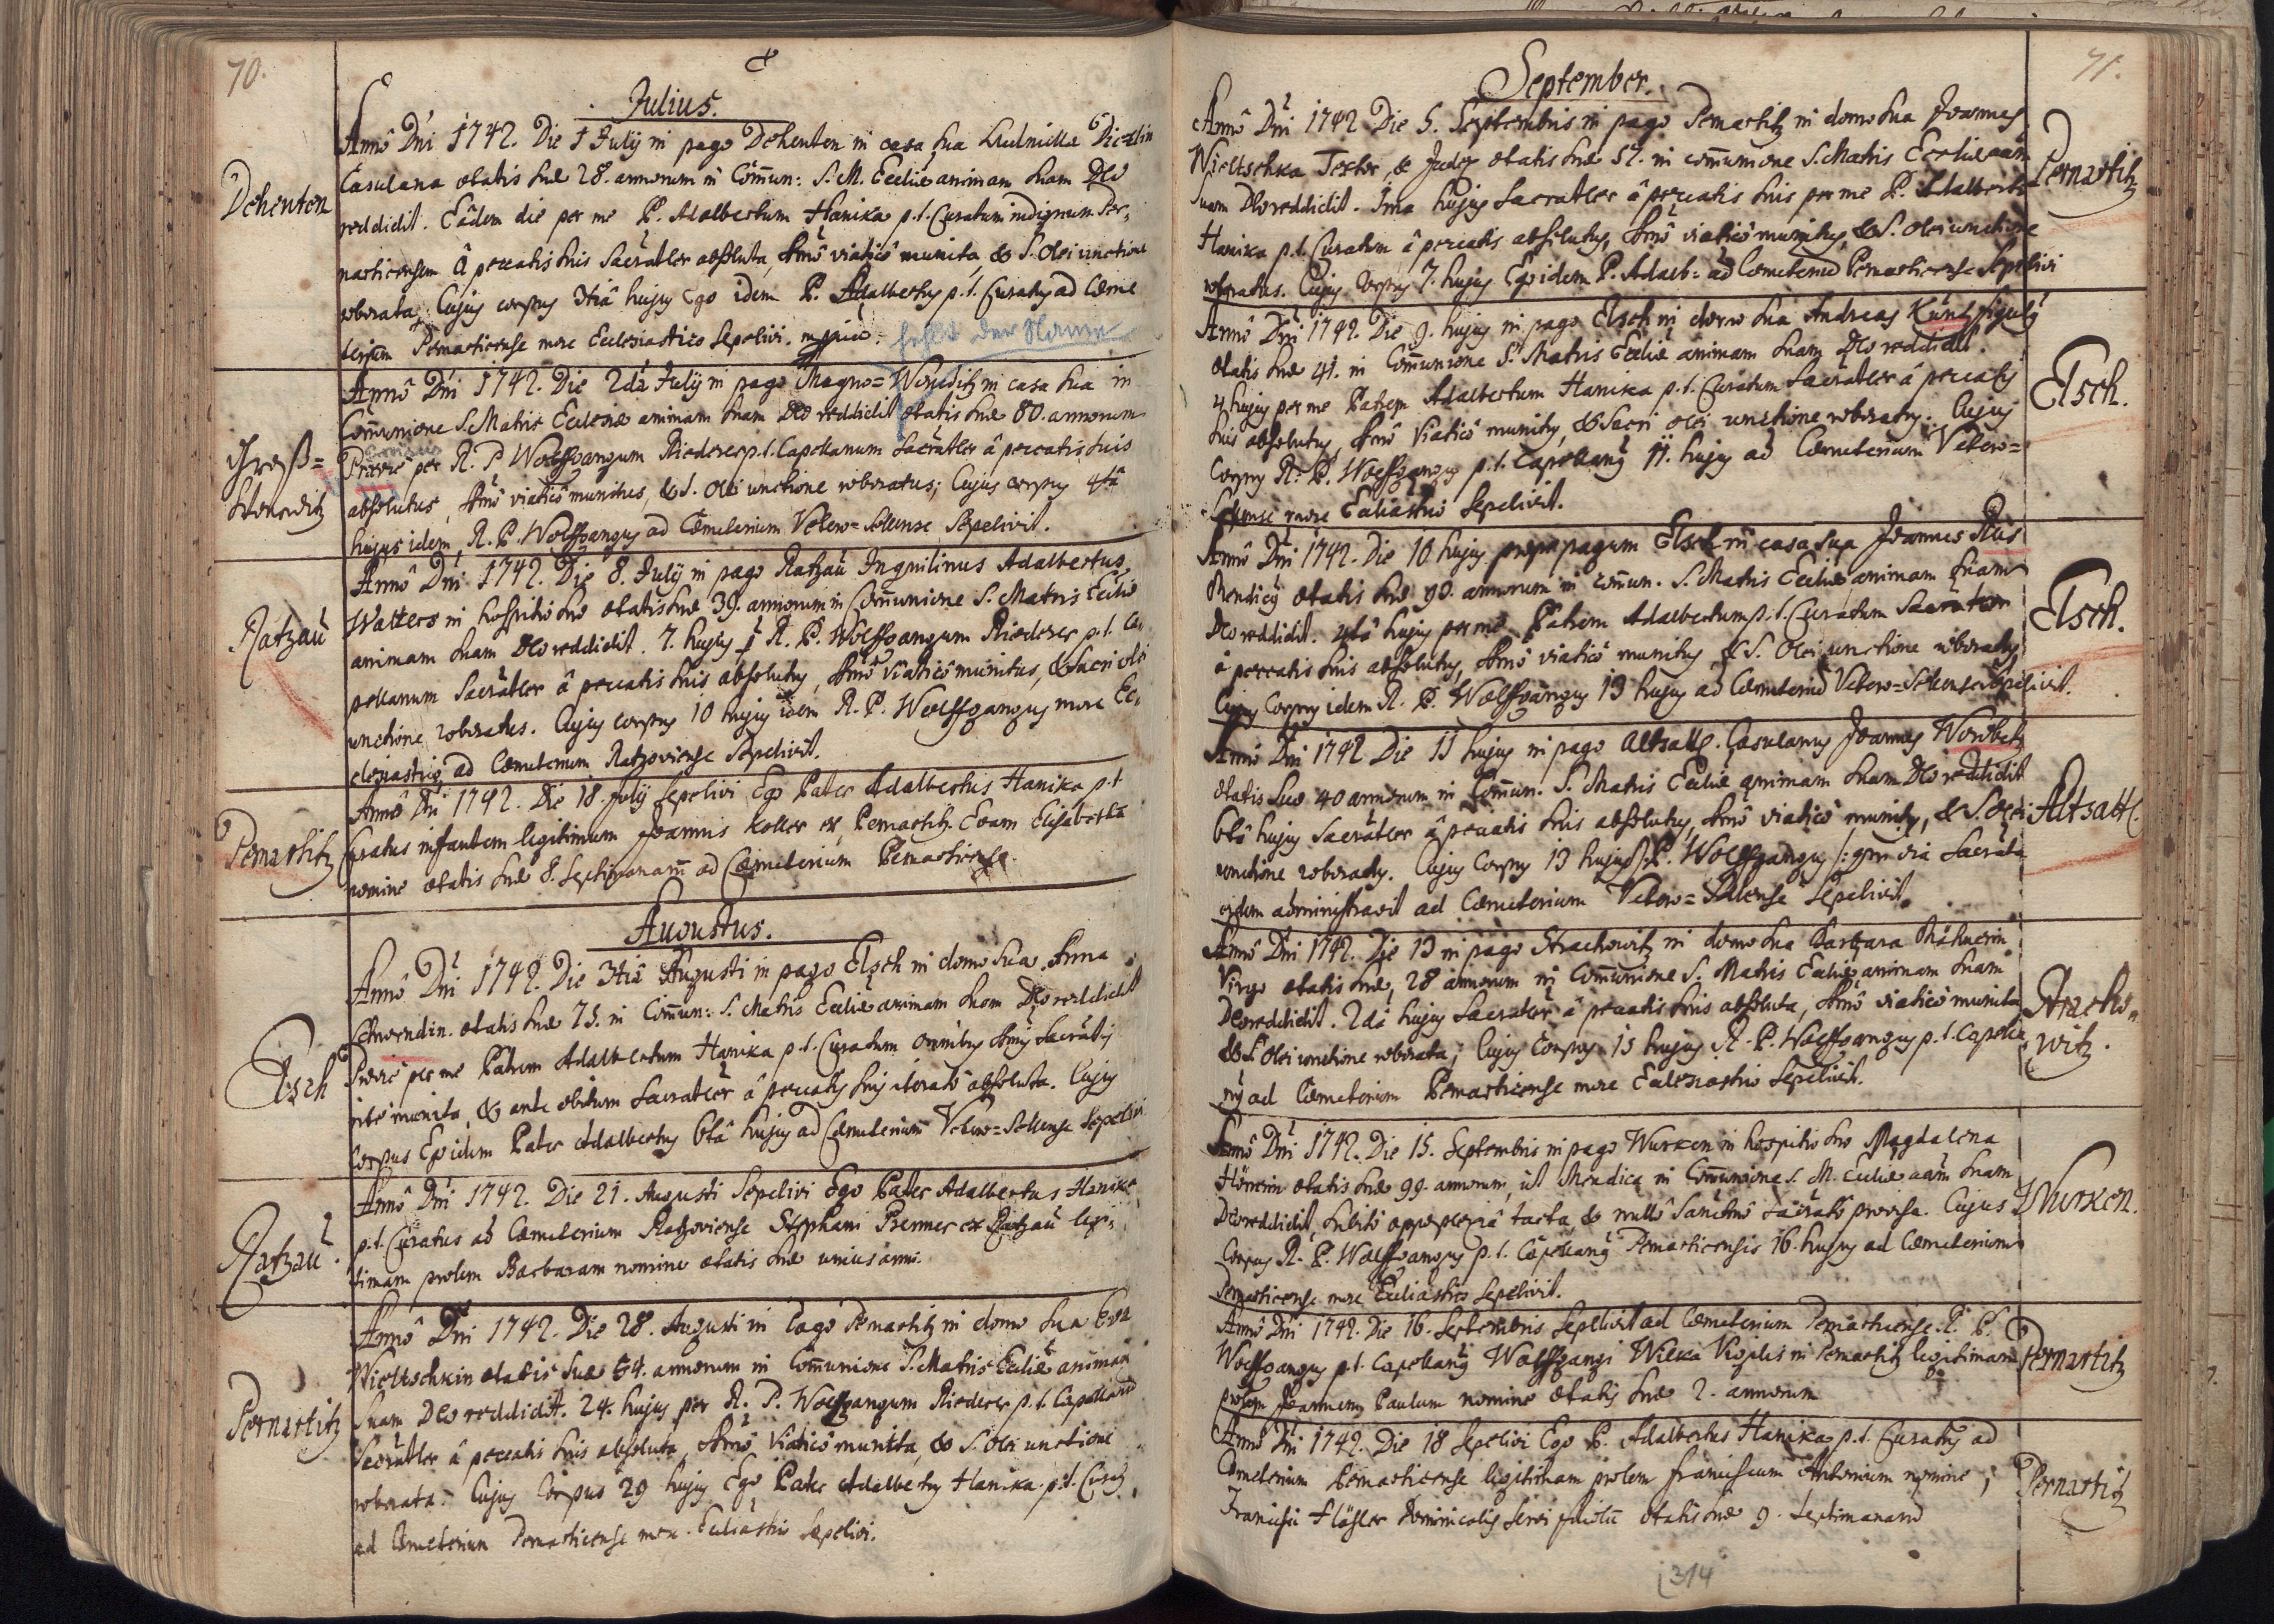 70.
Julius.
Dehenten
Annô Dñi 1742. Die 1 Julÿ in pago Dehenten in casa sua Ludmilla
Casulana ætatis suæ 28. annorum in Com̃un: S. M. Eccliæ animam suam Deo
reddidit. Eâdem die per me P. Adalbertum Hanika p. t. Curatum indignum Per,
narticensem â peccatis suis Sacrãtler absoluta, Smô viaticô munita, & S. Olei unctione
roborata, Cujus corpus 3tiâ hujus Ego idem P. Adalbertus p. t. Curatus ad Cœme
terium Pernarticense more Ecclesiastico Sepelivi. mppria.
fehlt der Name
Groß=
Wonetitz
Annô Dñi 1742. Die 2dâ Julÿ in pago Magno= in casa sua in
Com̃unione S. Matris Ecclesiæ animam suam Deo reddidit ætatis suæ 80. annorum
per R. P. Wolffgangum Riederer p. t. Capellanum Sacrãtler â peccatis suis
absolutus, Smô viaticô munitus, & S. Olei unctione roboratus; Cujus corpus 4tâ
hujus idem R. P. Wolffgangus ad Cœmeterium Vetero=Sedlense Sepelivit.
Ratzau
Annô Dñi 1742. Die 8. Julÿ in pago Ratzau Inquilinus Adalbertus
Watters in hospitio suo ætatis suæ 39. annorum in Com̃unione S. Matris Eccliæ
animam suam Deo reddidit. 7. hujus R. P. Wolffgangum Riederer p. t. Ca,
pellanum Sacrãtler â peccatis suis absolutus, Smô Viaticô munitus, & Sacri olei
unctione roboratus. Cujus corpus 10 hujus idem R. P. Wolffgangus more Ec,
clesiastico ad Cœmeterium Ratzoviense Sepelivit.
Pernartitz
Annô Dñi 1742. Die 18. Julÿ Sepelivi Ego Pater Adalbertus Hanika p. t
Curatus infantem legitimum Joannis Koller ex Pernartitz Evam Elisabetha
nomine ætatis suæ 8. Septimanarum ad Cœmeterium Pernarticense.
Augustus.
Elsch
Annô Dñi 1742. Die 3tiâ Augusti in pago Elsch in domo sua Anna
ætatis suæ 75. in Com̃un: S. Matris Eccliæ animam suam Deo reddidit
per me Patrem Adalbertum Hanika p. t. Curatum omnibus Smis Sacrãtis
rite munita, & ante obitum Sacrãtler â peccatis suis iteratô absoluta. Cujus
Corpus Ego idem Pater Adalbertus 6tâ hujus ad Cœmeterium Vetero=Sedlense Sepelivi
Ratzau
Annô Dñi 1742. Die 21. Augusti Sepelivi Ego Pater Adalbertus Hanika
p. t. Curatus ad Cœmeterium Ratzoviense Stephani Premer ex Ratzau legi,
timam prolem Barbaram nomine ætatis suæ unius anni.
Pernartitz
Annô Dñi 1742. Die 28. Augusti in Pago Pernartitz in domo sua Eva
Wieltschkin ætatis suæ 54. annorum in Com̃unione S. Matris Eccliæ animam
suam Deo reddidit. 24. hujus per R. P. Wolffgangum Riederer p. t. Capellanũ
Sacrãtler â peccatis suis absoluta, Smô Viaticô munita, & S. Olei unctione
roborata. Cujus Corpus 29 hujus Ego Pater Adalbertus Hanika p. t. Curatus
ad Cœmeterium Pernarticense more Eccliastico Sepelivi.
71.
September.
Annô Dñi 1742 Die 5. Septembris in pago Pernartitz in domo sua Joannes
Wieltschka Textor, & Judex ætatis suæ 57. in com̃unione S. Matris Eccliæ aãm
Suam Deo reddidit. 1ma hujus Sacrãtler â peccatis suis per me P. Adalbertũ
Hanika p. t. Curatum â peccatis absolutus, Smô viaticô munitus, & S. Olei unctione
roboratus. Cujus Corpus 7. hujus Ego idem P. Adalb: ad Cœmeteriũ Pernarticense Sepelivi
Pernartitz
Annô Dñi 1742. Die 9. hujus in pago Elsch in domo sua Andreas Künl figulus
ætatis suæ 41. in Com̃unione S. Matris Eccliæ animam suam Deo reddidit.
4 hujus per me Patrem Adalbertum Hanika p. t. Curatum Sacrãtler â peccatis
suis absolutus, Smô Viaticô munitus, & Sacri olei unctione roboratus. Cujus
Corpus R. P. Wolffgangus p. t. Capellanus 11. hujus ad Cœmeterium Vetero=
Sedlense more Eccliastico Sepelivit.
Elsch.
Annô Dñi 1742. Die 10 hujus prope pagum Elsch in casa sua Joannes
Mendicus ætatis suæ 90. annorum in com̃un. S. Matris Eccliæ animam suam
Deo reddidit. 4tâ hujus per me Patrem Adalbertum p. t. Curatum Sacrãtler
â peccatis suis absolutus, Smô viaticô munitus, & S. Olei unctione roboratus
Cujus Corpus idem R. P. Wolffgangus 13 hujus ad Cœmeteriũ Vetero=Sedlense Sepelivit.
Elsch.
Annô Dñi 1742 Die 11 hujus in pago Altsattl. Casulanus Joannes Worobetz
ætatis suæ 40 annorum in Com̃un. S. Matris Eccliæ animam suam Deo reddidit
6tâ hujus Sacrãtler â peccatis suis absolutus, Smô viaticô munitus, & S. Olei
unctione roboratus. Cujus Corpus 13 hujus P. Wolffgangus Sacrãta
eidem administravit ad Cœmeterium Vetero=Sedlense Sepelivit.
Altsattl.
Annô Dñi 1742. Die 13 in pago Strachowitz in domo sua Barbara
Virgo ætatis suæ 28 annorum in Com̃unione S. Matris Eccliæ animam suam
Deo reddidit. 2dâ hujus Sacrãtler â peccatis suis absoluta, Smô viaticô munita
& S. Olei unctione roborata; Cujus Corpus 15 hujus R. P. Wolffgangus p. t. Capella
nus ad Cœmeterium Pernarticense more Ecclesiastico Sepelivit.
Stracho,
witz.
Annô Dñi 1742. Die 15. Septembris in pago Wurken in hospitio suo Magdalena
ætatis suæ 99. annorum, ut Mendica in Com̃unione S. M. Eccliæ aãm suam
Deo reddidit, subitô appoplexiâ tacta, & nullô Sanctmô Sacrãtô provisa. Cujus
Corpus R. P. Wolffgangus p. t. Capellanus Pernarticensis 16. hujus ad Cœmeterium
Pernarticense more Eccliastico Sepelivit.
Wurken.
Annô Dñi 1742. Die 16. Septembris Sepelivit ad Cœmeterium Pernarticense R. P.
Wolffgangus p. t. Capellanus Wolffgangi Wilka Vigilis in Pernartitz legitimam
prolem Joannem Paulum nomine ætatis suæ 2. annorum
Pernartitz
Annô Dñi 1742. Die 18 Sepelivi Ego P. Adalbertus Hanika p. t. Curatus ad
Cœmeterium Pernarticense legitimam prolem Franciscum Antonium nomine,
Francisci ætatis suæ 9. Septimanarũ
Pernartitz
314